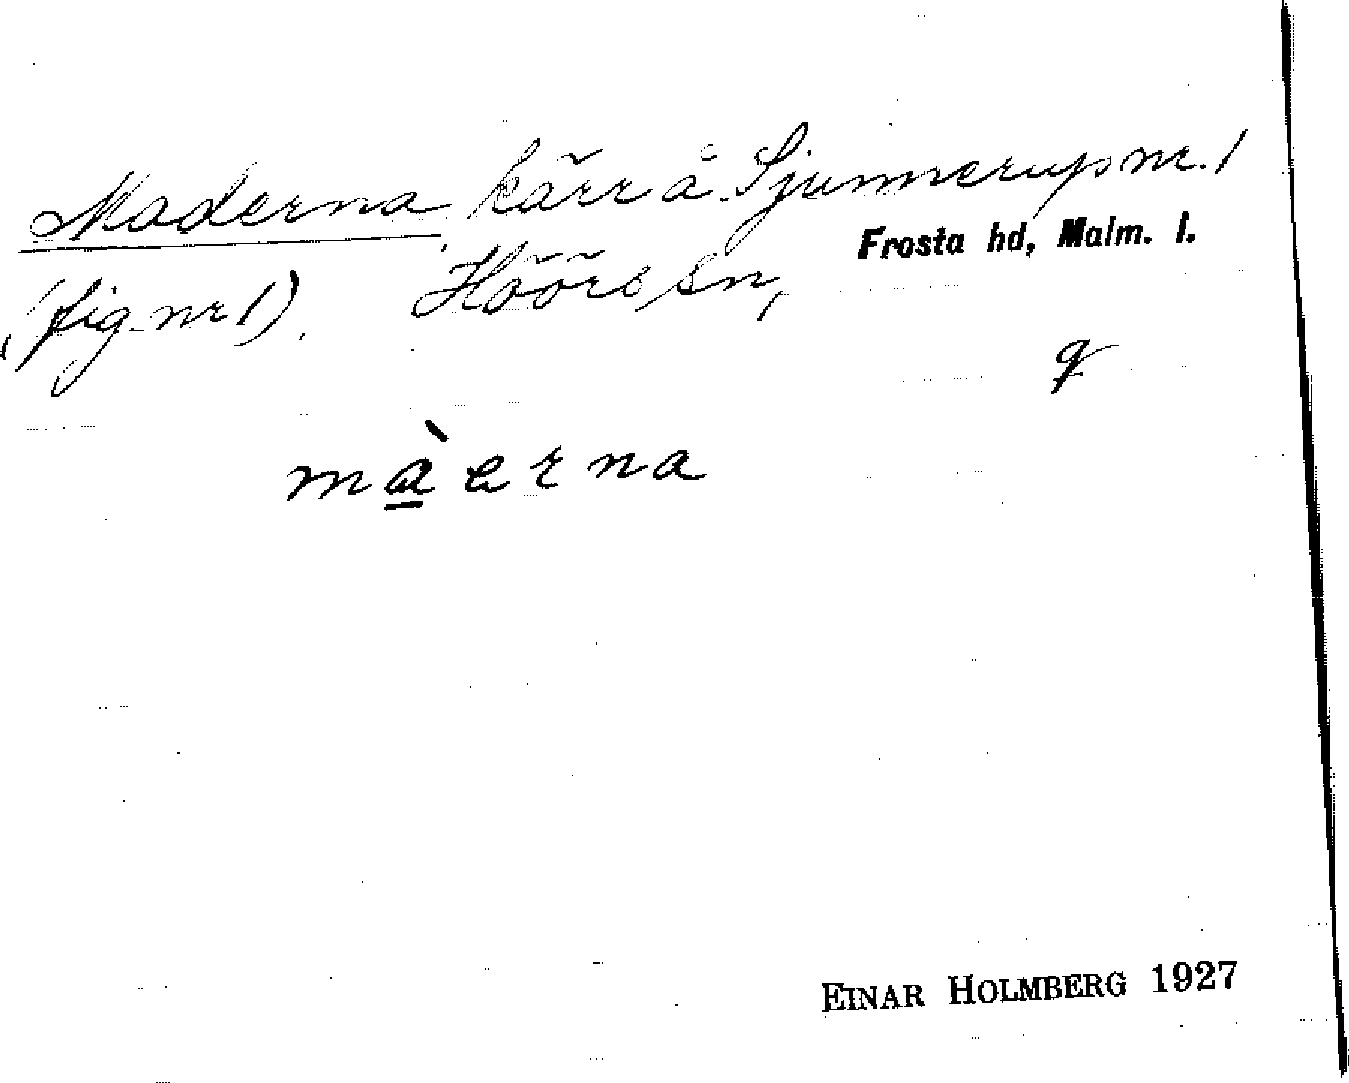 Maderna, kärr å Sjunnerup nr. 1
Frosta hd, Malm. l.
(fig nr 1). Höörs sn,
q
màerna
EINAR HOLMBERG 1927